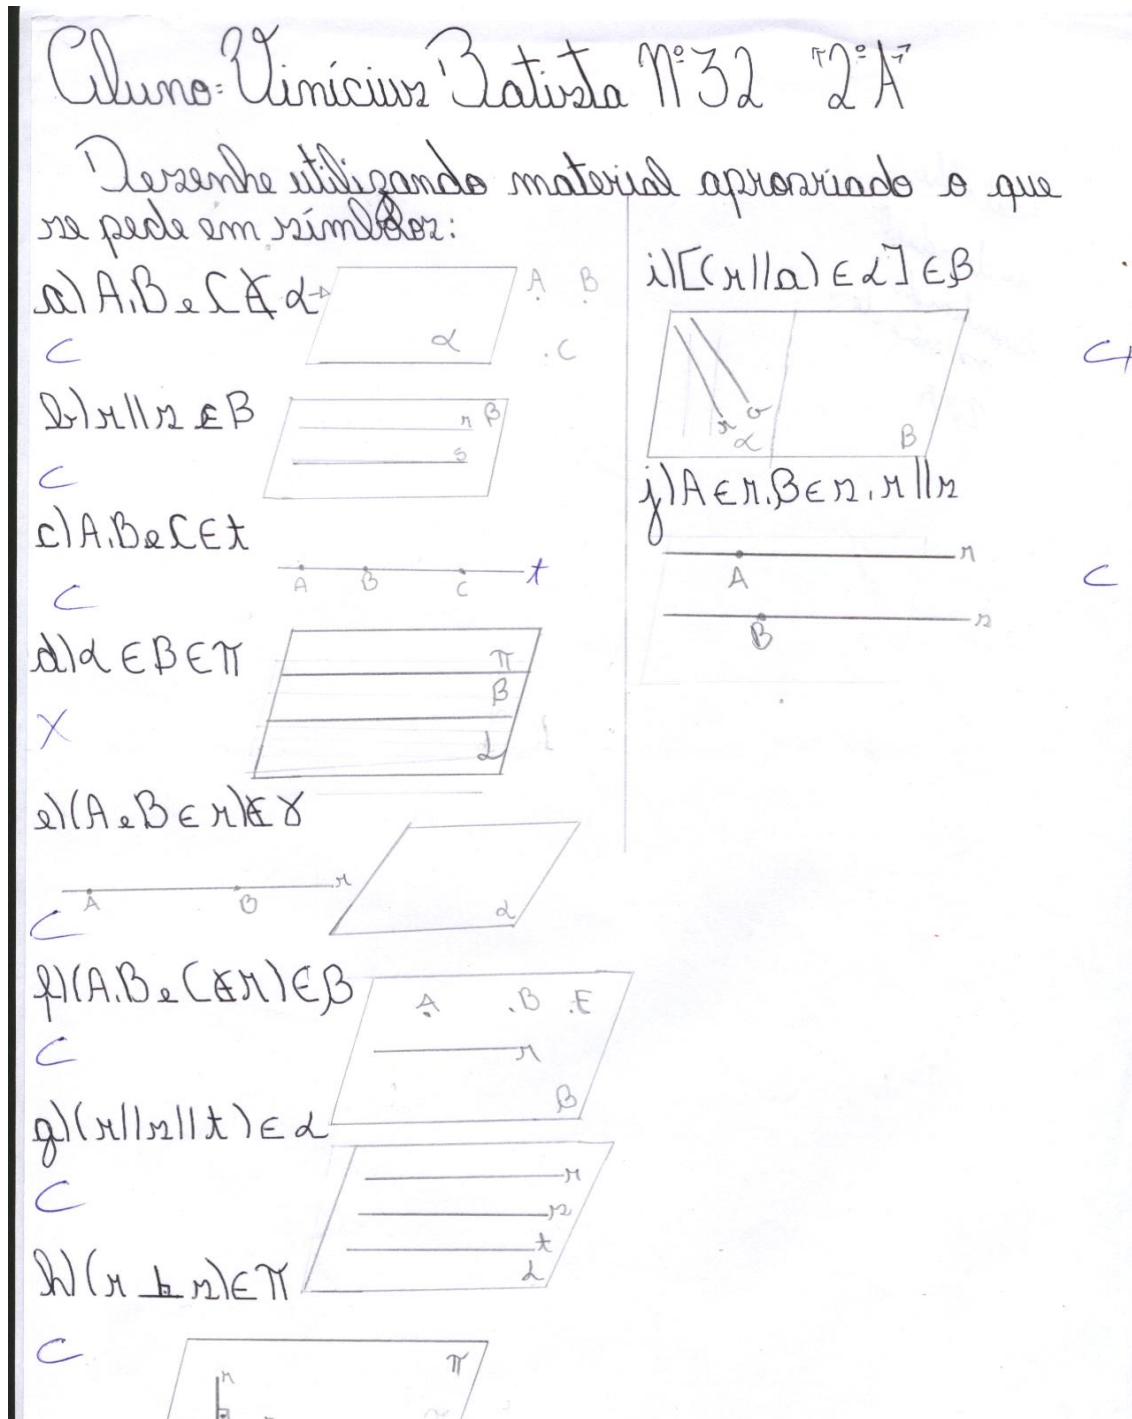 Aluno: Vinícius Batista Nº 32 "2ºA"
Desenhe utilizando material apropriado o que
se pede em símbolos:
a) A, B e C ∉ α →
α
A B
C
C
b) r//s ∈ β
r β
s
C
c) A, B e C ∈ t
A B C t
C
d) α ∈ β ∈ π
π
β
α
X
e) (A e B ∈ r) ∉ γ
A B r
α
C
f) (A, B e C ∉ r) ∈ β
A B E
r
β
C
g) (r//s//t) ∈ α
r
s
t
α
C
h) (r ⊥ s) ∈ π
C
π
r
i) [(r//a) ∈ α] ∈ β
r a
α B
C
j) A ∈ r, B ∈ s, r//s
A r
B s
C